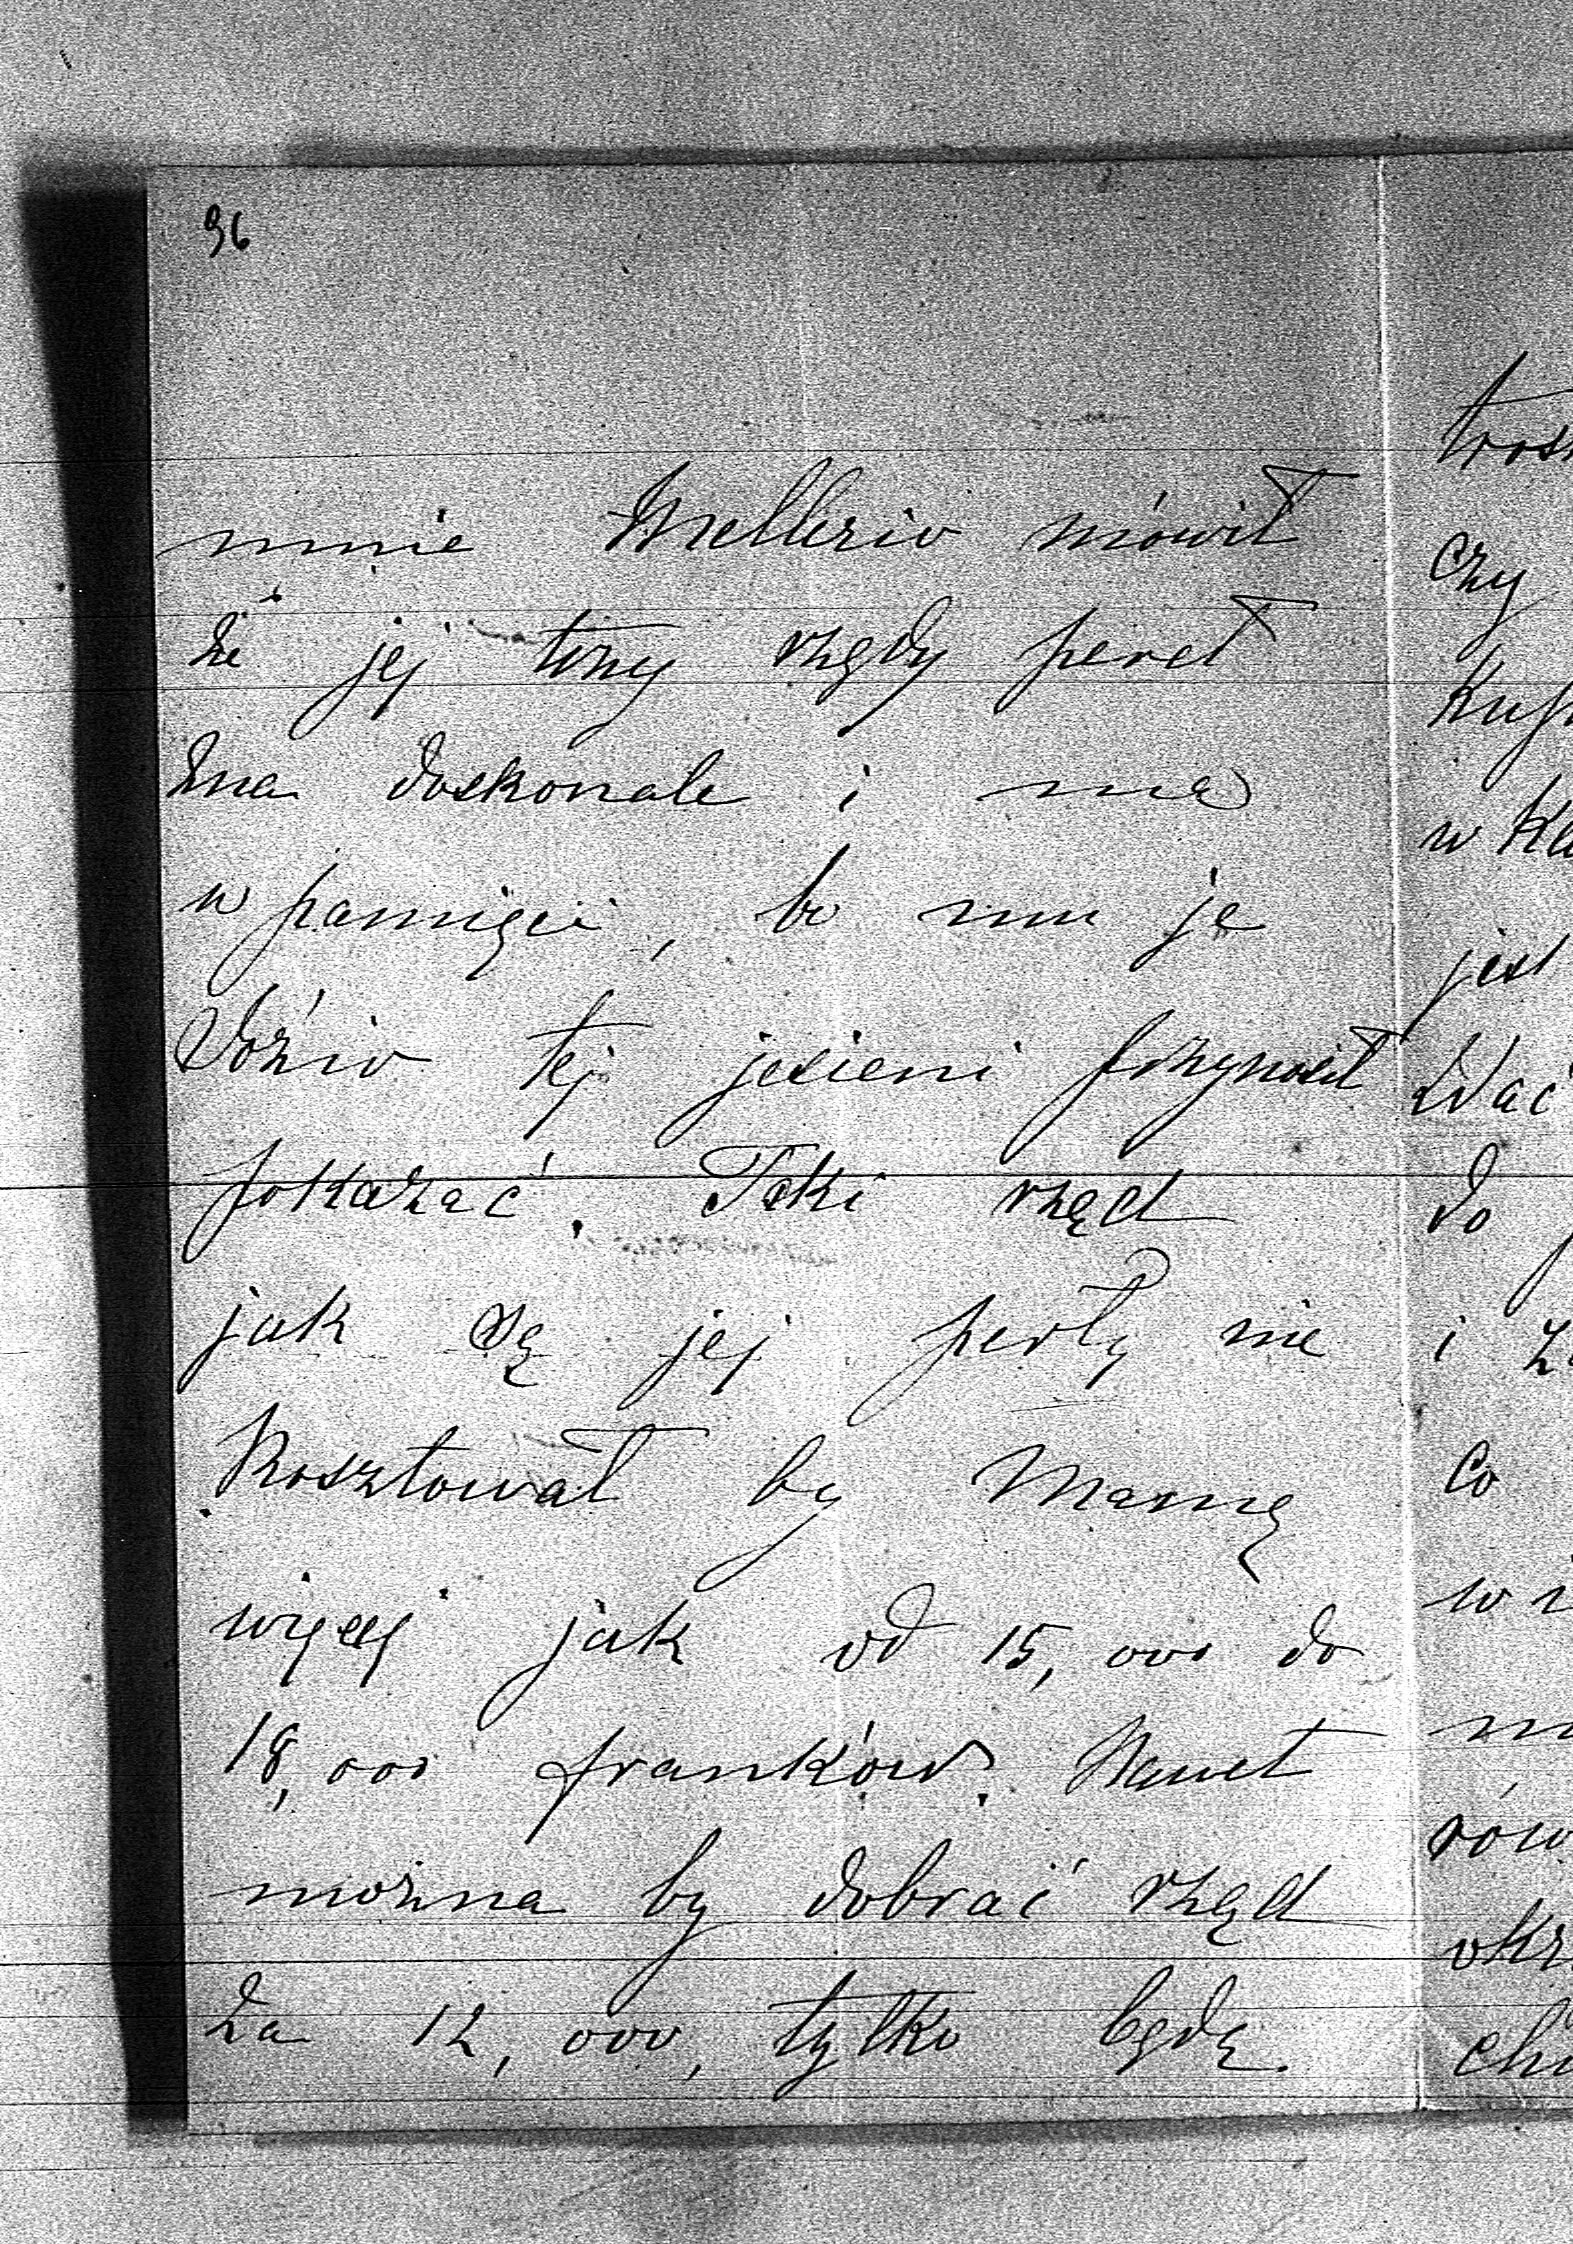 96
mnie Mellerio mówił
że jej trzy rzędy pereł
zna doskonale i ma
w pamięci, bo mu je
Józio tej jesieni przynosił
pokazać. Taki rząd
jak są jej perły nie
kosztował by Mamę
więcej jak od 15,000 do
18,000 franków. Nawet
można by dobrać rząd
za 12,000, tylko będą
czy
w
jest
do
i
co